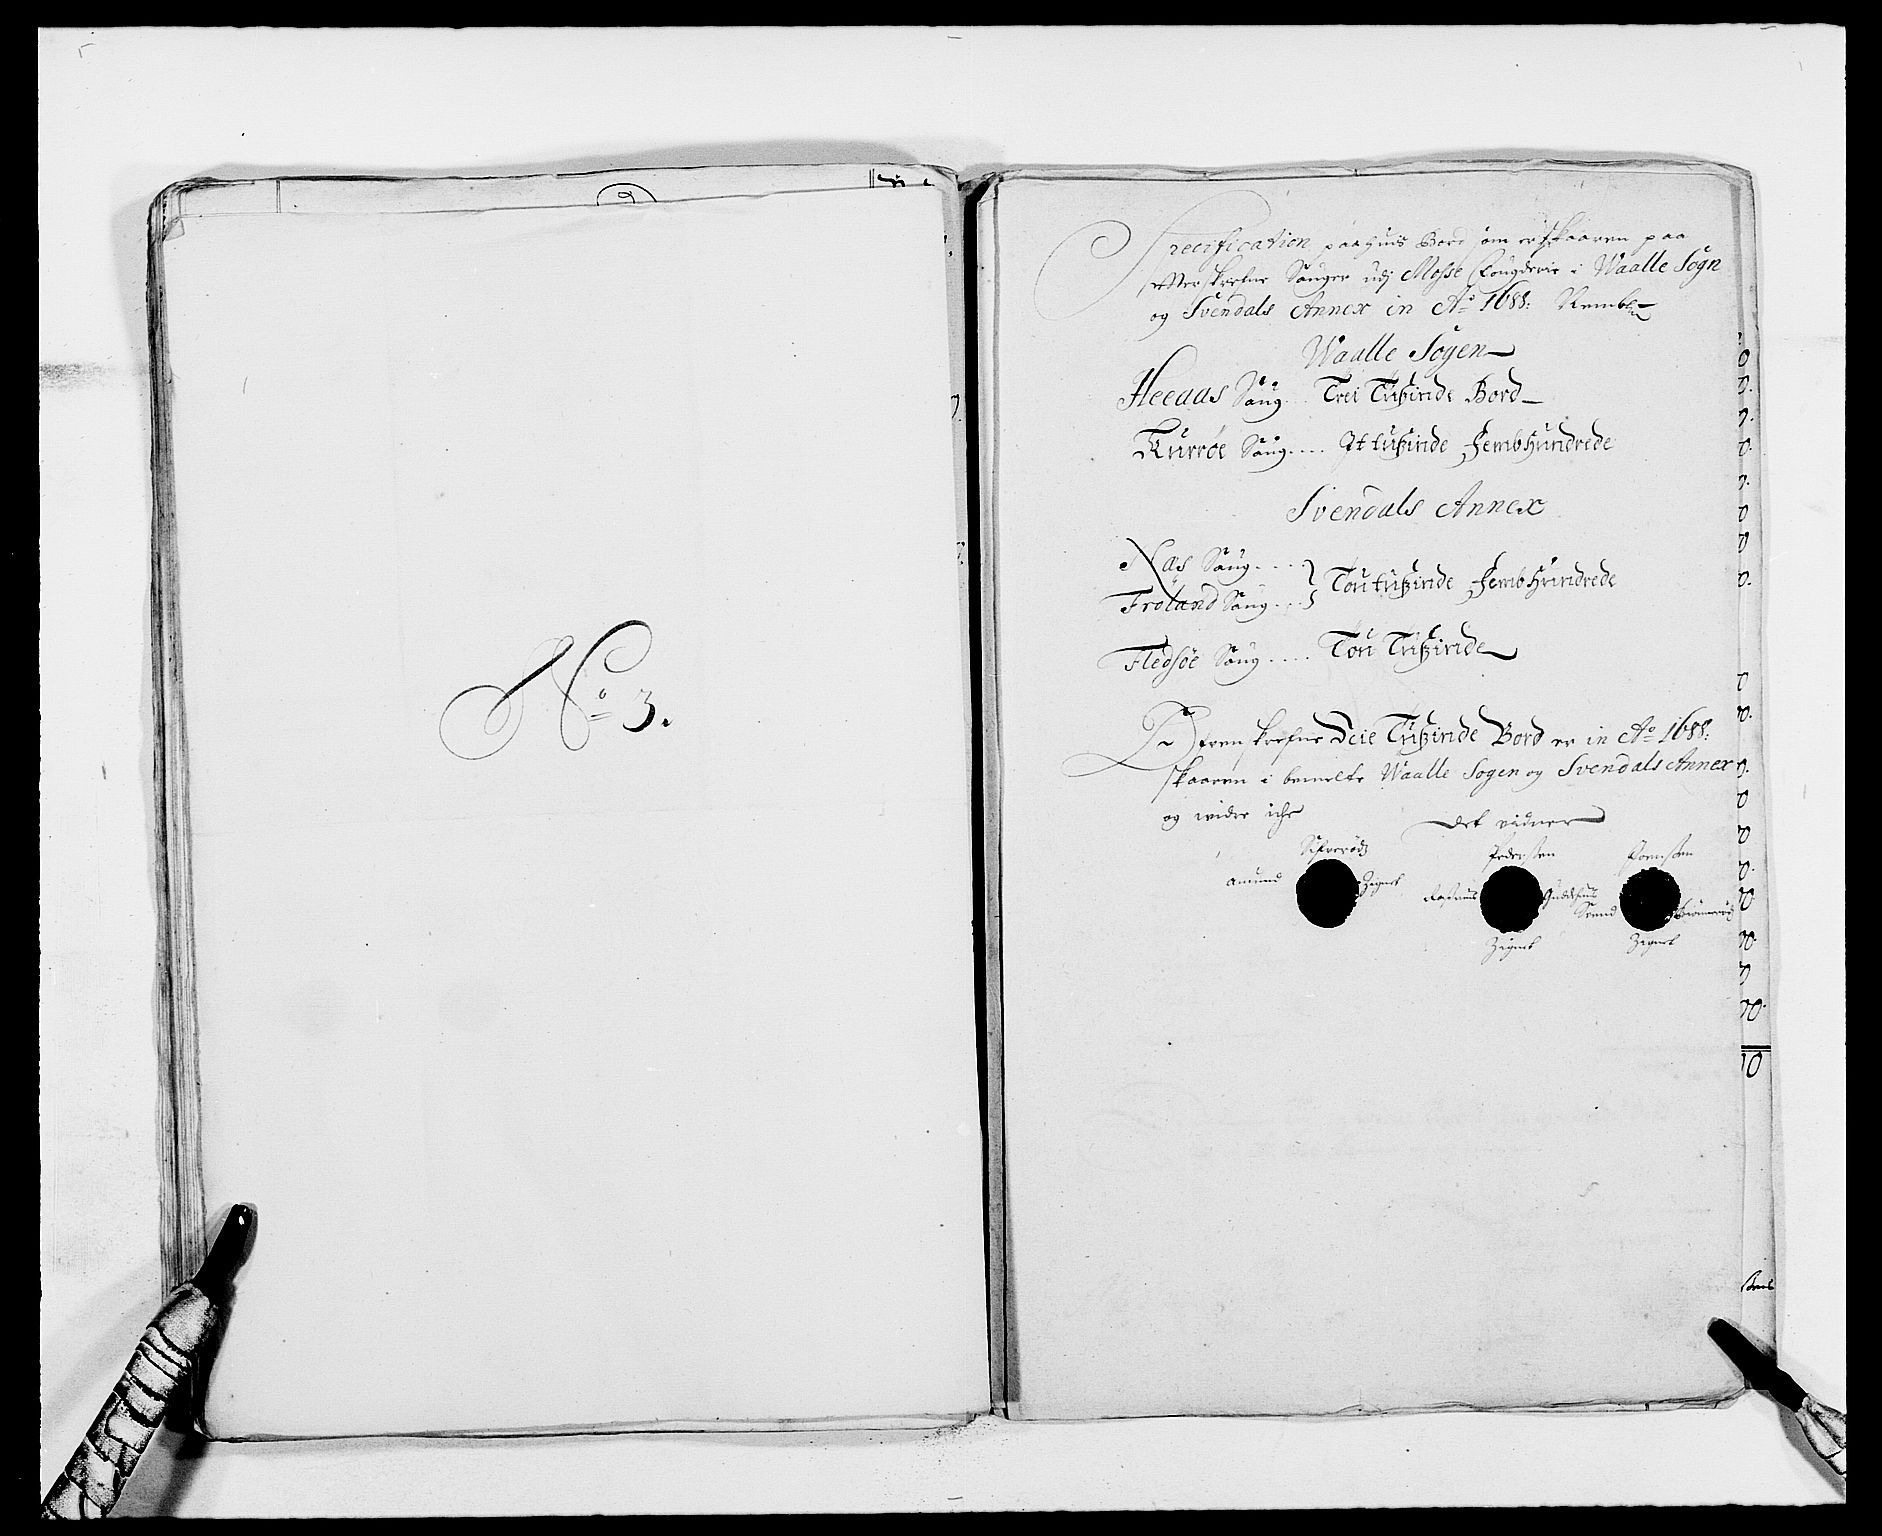 No 3.
Specification paa huis Bord som er skaaren paa
effterskrefne Sauger udj Mosse Fougderie i Waalle Sogn
og Svendals Annex in Ao 1688: Nembl:
Waalle Sogen
Heeaas Saug... Trei Tuszinde Bord
Kurrøe Saug.... It tuszinde Femb Hundrede
Svendals Annex
Nas Saug....
Froland Saug...
Tou tuszinde Femb Hundrede
Fledsøe Saug.... Tou Tuszinde
Ofvenskrefne Deie Tuszinde Bord er in Ao 1688:
skaaren i bemelte Waalle Sogen og Svendals Annex
og widre iche
Det vidner
Amund Zignet
Pedersen
Zignet
Svend
Zignet